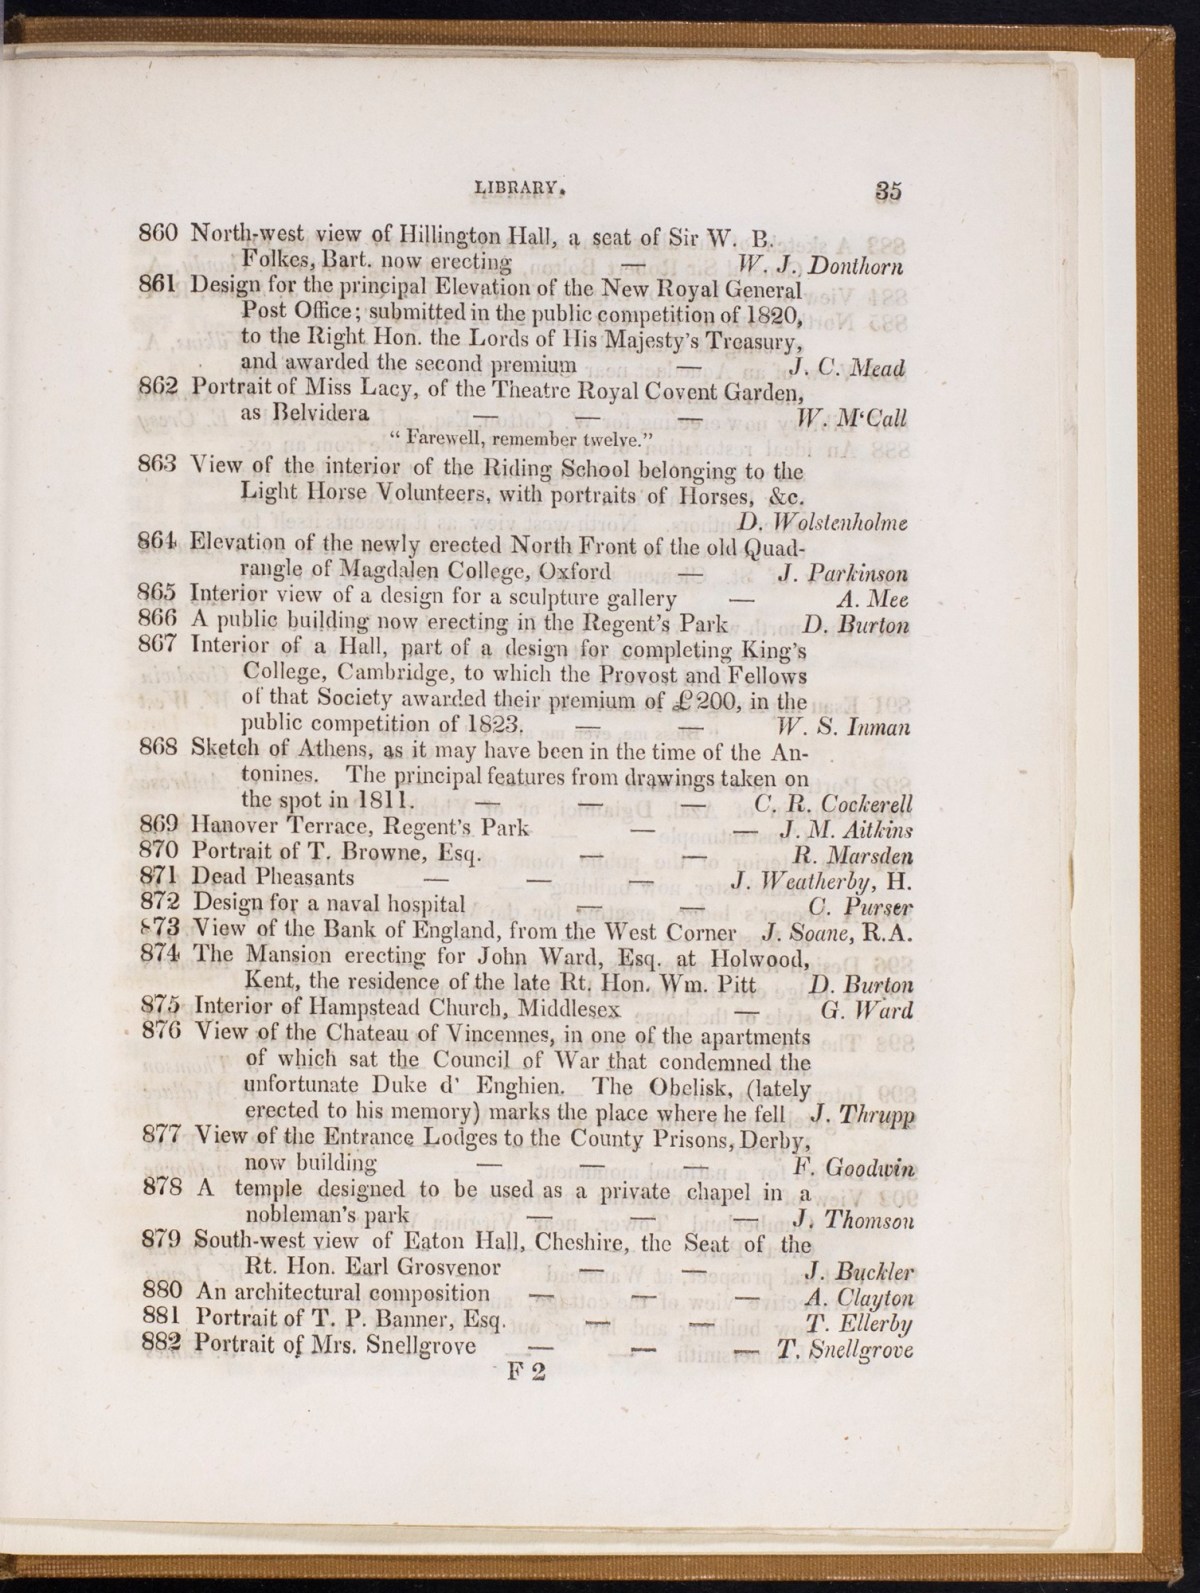 LIBRARY. 35
860 North-west view of Hillington Hall, a seat of Sir W. B.
Folkes, Bart. now erecting — W. J. Donthorn
861 Design for the principal Elevation of the New Royal General
Post Office; submitted in the public competition of 1820,
to the Right Hon. the Lords of His Majesty's Treasury,
and awarded the second premium — J. C. Mead
862 Portrait of Miss Lacy, of the Theatre Royal Covent Garden,
as Belvidera — — — W. M‘Call
“ Farewell, remember twelve.”
863 View of the interior of the Riding School belonging to the
Light Horse Volunteers, with portraits of Horses, &c.
D. Wolstenholme
864 Elevation of the newly erected North Front of the old Quad-
rangle of Magdalen College, Oxford — J. Parkinson
865 Interior view of a design for a sculpture gallery — A. Mee
866 A public building now erecting in the Regent's Park D. Burton
867 Interior of a Hall, part of a design for completing King's
College, Cambridge, to which the Provost and Fellows
of that Society awarded their premium of £200, in the
public competition of 1823. — — W. S. Inman
868 Sketch of Athens, as it may have been in the time of the An-
tonines. The principal features from drawings taken on
the spot in 1811. — — — C. R. Cockerell
869 Hanover Terrace, Regent's Park — — J. M. Aitkins
870 Portrait of T. Browne, Esq. — — R. Marsden
871 Dead Pheasants — — — J. Weatherby, H.
872 Design for a naval hospital — — C. Purser
873 View of the Bank of England, from the West Corner J. Soane, R.A.
874 The Mansion erecting for John Ward, Esq. at Holwood,
Kent, the residence of the late Rt. Hon. Wm. Pitt D. Burton
875 Interior of Hampstead Church, Middlesex — G. Ward
876 View of the Chateau of Vincennes, in one of the apartments
of which sat the Council of War that condemned the
unfortunate Duke d' Enghien. The Obelisk, (lately
erected to his memory) marks the place where he fell J. Thrupp
877 View of the Entrance Lodges to the County Prisons, Derby,
now building — — — F. Goodwin
878 A temple designed to be used as a private chapel in a
nobleman's park — — — J. Thomson
879 South-west view of Eaton Hall, Cheshire, the Seat of the
Rt. Hon. Earl Grosvenor — — J. Buckler
880 An architectural composition — — — A. Clayton
881 Portrait of T. P. Banner, Esq. — — T. Ellerby
882 Portrait of Mrs. Snellgrove — — — T. Snellgrove
F 2